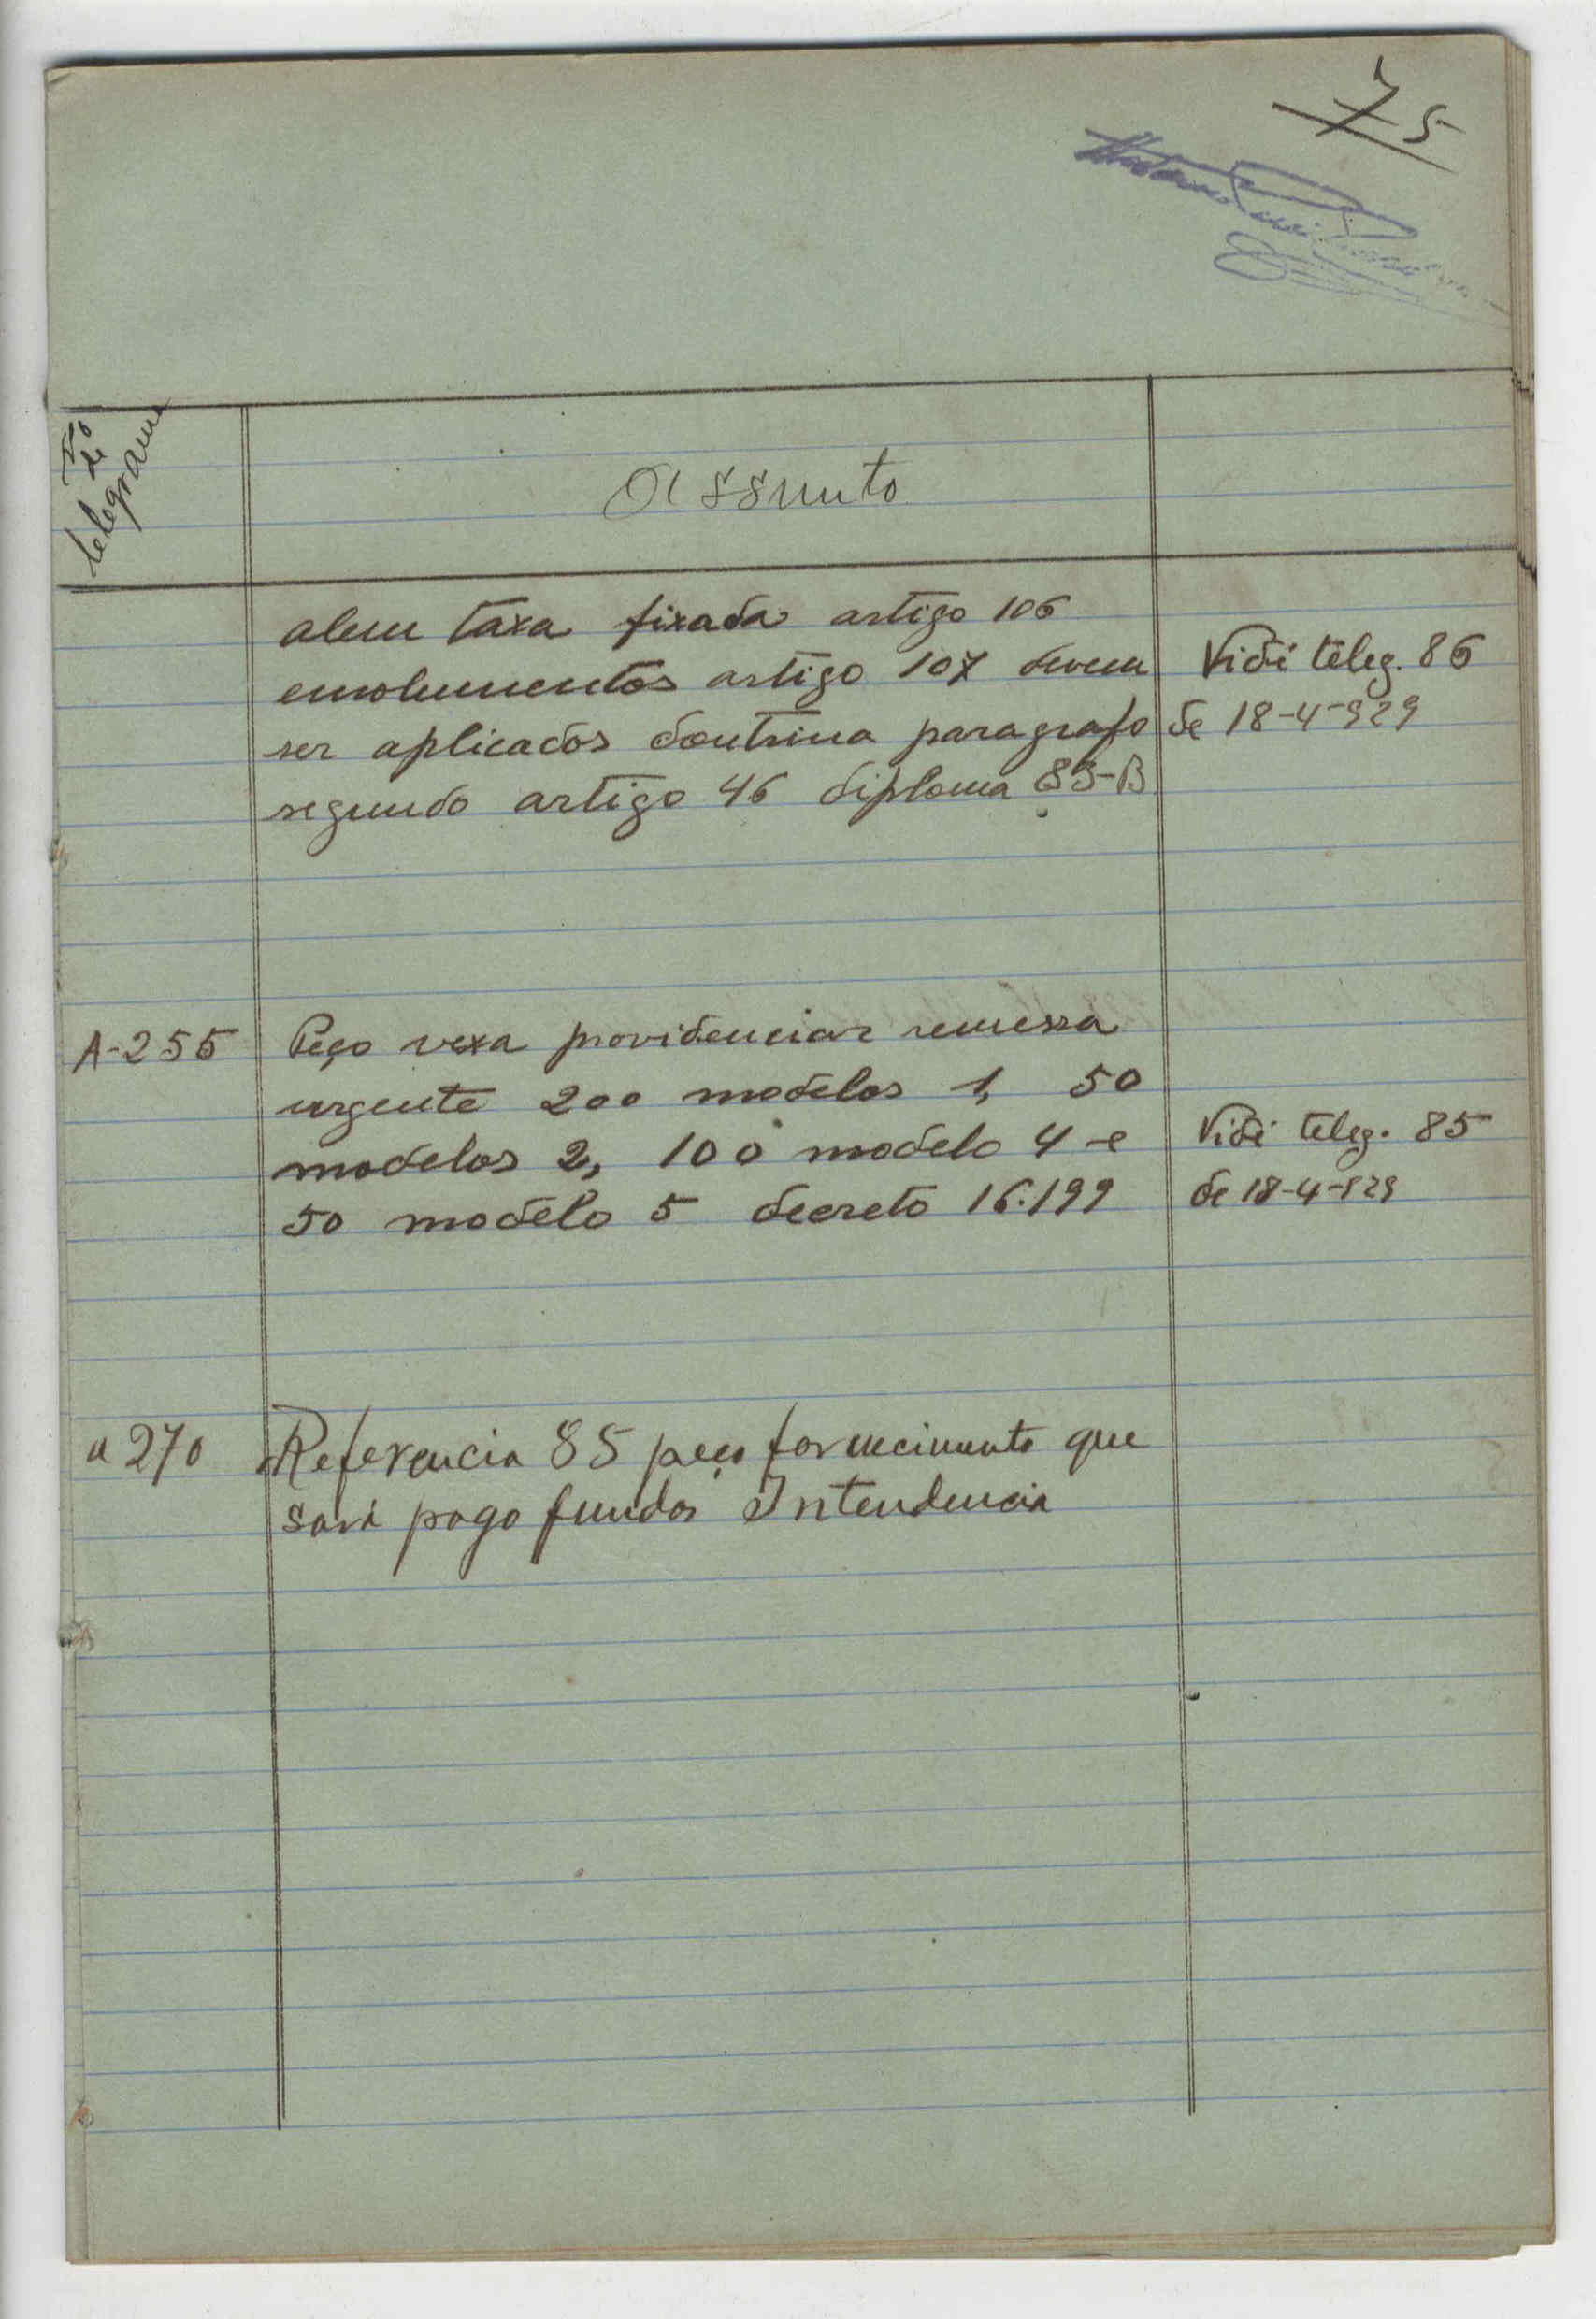 75
Nº de telegrama
Assunto
alem taxa fixada artigo 106
emolumentos artigo 107 devem
ser aplicados doutrina paragrafo
segundo artigo 46 diploma 83-B
Vidé teleg. 86
de 18-4-929
A-255
Peço vexa providenciar remessa
urgente 200 modelos 1, 50
modelos 2, 100 modelo 4 e
50 modelo 5 decreto 16.199
Vidé teleg. 85
de 18-4-929
a 270
Referencia 85 peço fornecimento que
será pago fundos Intendencia